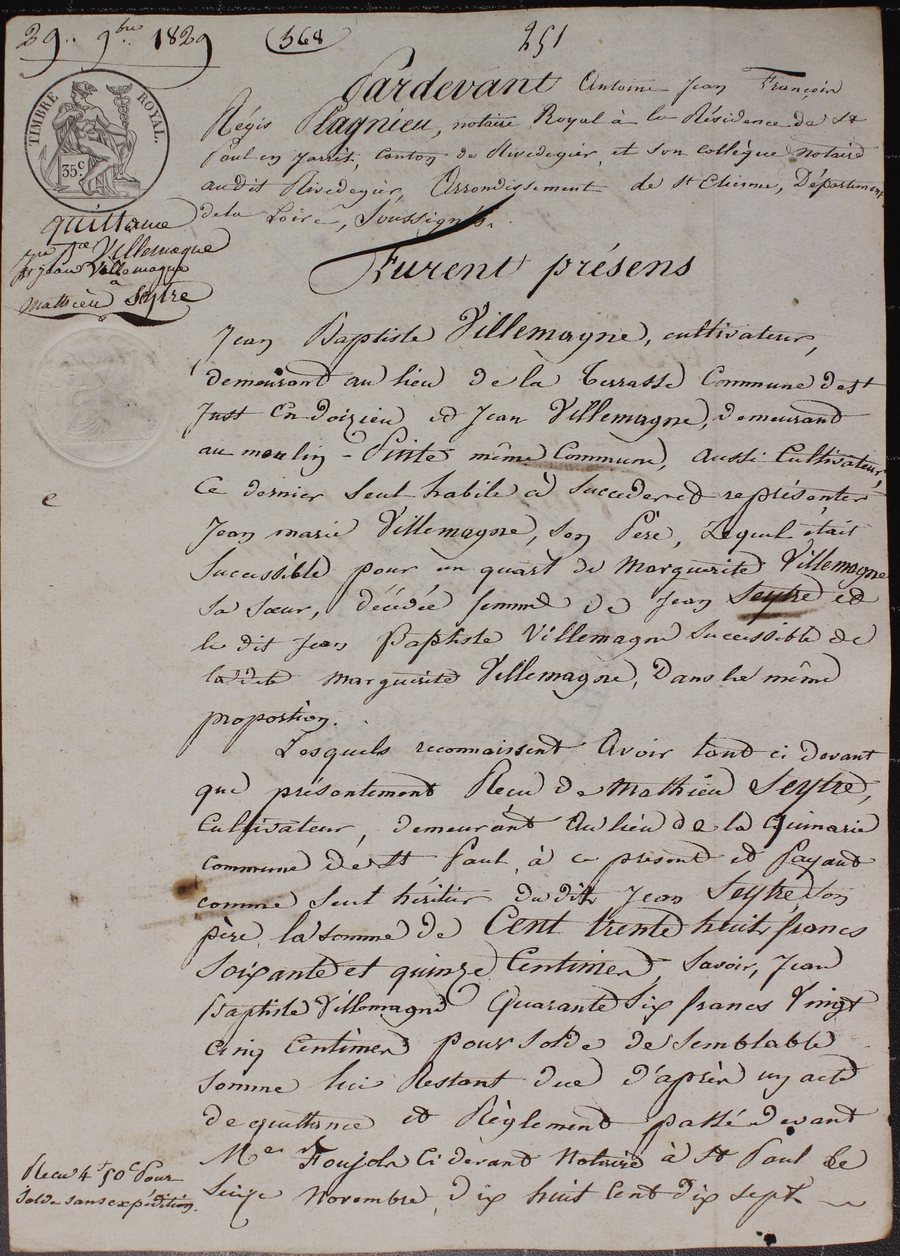 29.. 9bre 1829
568
251
TIMBRE ROYAL.
35 c.
quittance
par J.n B.te Villemagne
et Jean Villemagne
a
Mathieu Seytre
Pardevant Antoine Jean François
Régis Plagnieu, notaire Royal à la Résidence de St
Paul en Jarrêt, Canton de Rivedegier, et son collègue notaire
audit Rivedegier, Arrondissement de St Etienne, Département
de la Loire, Soussignés.
Furent présens
Jean Baptiste Villemagne, cultivateur,
demeurant au lieu de la Terrasse Commune de st
Just En doizieu et Jean Villemagne, demeurant
au moulin - Pinte même Commune, aussi Cultivateur,
Ce dernier Seul habile à Succeder et représenter
Jean marie Villemagne, son Père, Lequel était
Successible pour un quart de Marguerite Villemagne
sa sœur, décédée femme de Jean Seytre et
le dit Jean Baptiste Villemagne Successible de
la dite Marguerite Villemagne, Dans le même
proportion.
Lesquels reconnaissent Avoir tant ci devant
que présentement Reçu de Mathieu Seytre,
Cultivateur, demeurant Au lieu de la Guimarie
commune de St Paul, à ce présent et Payant
comme Seul héritier dudit Jean Seytre, Son
père, la somme de Cent trente huit francs
Soixante et quinze Centimes, Savoir, Jean
Baptiste Villemagne Quarante Six francs Vingt
Cinq Centimes pour solde de Semblable
somme lui Restant due d'après un acte
de quittance et Règlement passé devant
Me Foujols Ci devant Notaire à St Paul le
Seize Novembre, dix huit Cent dix sept
Reçu 4 f 50 c Pour
Solde sans expédition.
e